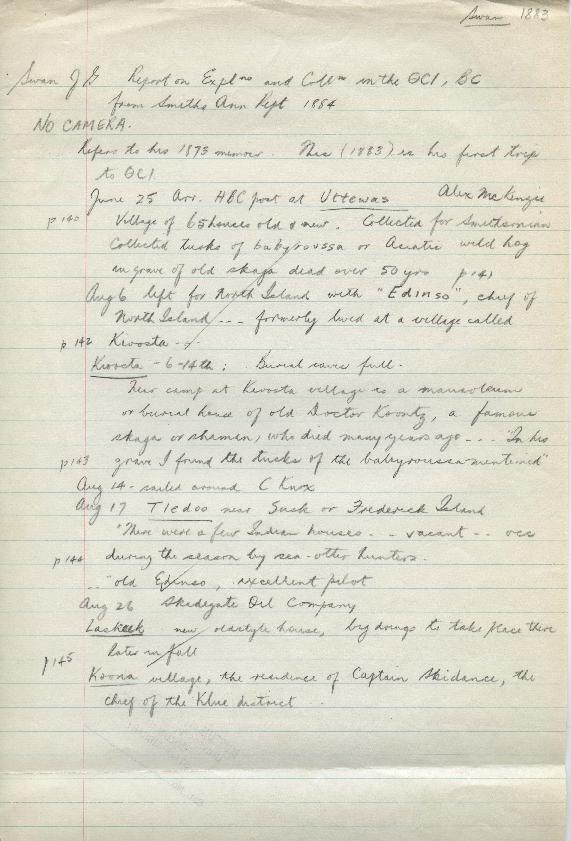 Swan 1883
Swan J G Report on Expl ns and Coll ns in the QCI, BC
from Smiths Ann Rept 1884
NO CAMERA.
Refers to his 1873 memoir. This (1883) is his first trip
to QCI
June 25 Arr. HBC post at Uttewas Alex McKenzie
p 140 Village of 65 houses old & new. Collected for Smithsonian
Collected tusks of babyroussa or Asiatic wild hog
in grave of old skaga dead over 50 yrs p 141
Aug 6 left for North Island with "Edinso", chief of
North Island --- formerly lived at a village called
p 142 Kioosta --
Kioosta - 6-14th: Burial caves full.
Near camp at Kioosta village is a mausoleum
or burial house of old Doctor Koontz, a famous
skaga or shaman, who died many years ago --- "In his
p 143 grave I found the tusks of the babyroussa mentioned"
Aug 14 - sailed around C Knox
Aug 17 Tledoo near Susk or Frederick Island
"There were a few Indian houses --- vacant -- occ
p 144 during the season by sea-otter hunters.
... "old Edinso, excellent pilot
Aug 26 Skidegate Oil Company
Laskeek new oldstyle house, big doings to take place there
later in fall
p 145
Koona village, the residence of Captain Skidance, the
chief of the Klue district ..